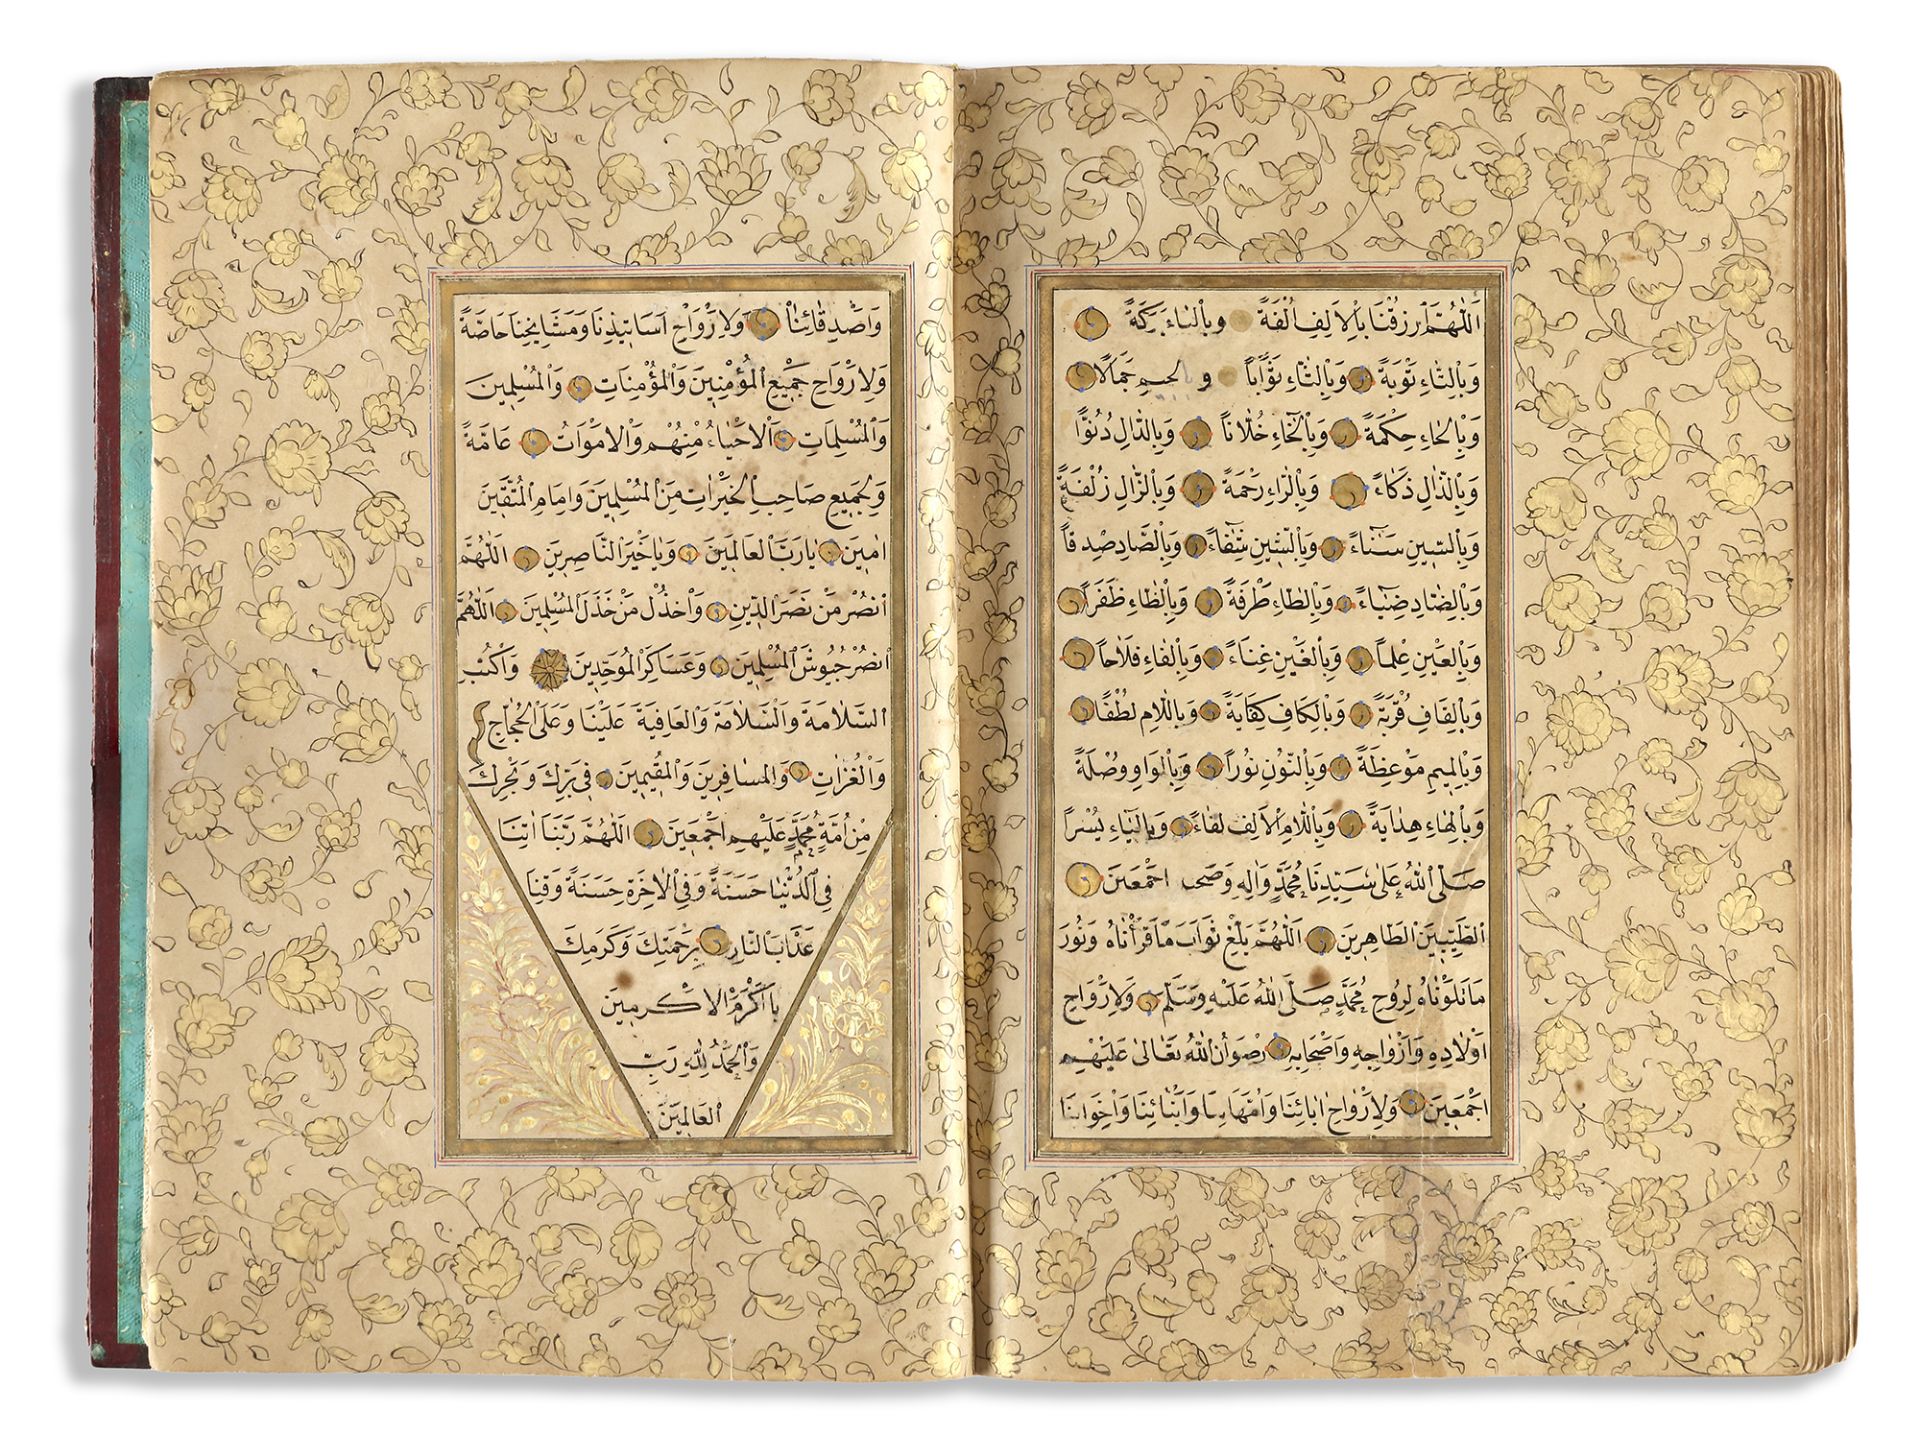 اَللّٰهُمَّ ارْزُقْنَا بِالْاَلِفِ اُلْفَةً وَبِالْبَاءِ بَرَكَةً
وَبِالتَّاءِ تَوْبَةً وَبِالثَّاءِ ثَوَاباً وَبِالْجِيمِ جَمَالًا
وَبِالْحَاءِ حِكْمَةً وَبِالْخَاءِ خُلَّاناً وَبِالدَّالِ دُنُوًّا
وَبِالذَّالِ ذَكَاءً وَبِالرَّاءِ رَحْمَةً وَبِالزَّالِ زُلْفَةً
وَبِالسِّينِ سَنَاءً وَبِالشِّينِ شِفَاءً وَبِالصَّادِ صِدْقاً
وَبِالضَّادِ ضِيَاءً وَبِالطَّاءِ طَرْفَةً وَبِالظَّاءِ ظَفَراً
وَبِالْعَيْنِ عِلْماً وَبِالْغَيْنِ غِنَاءً وَبِالْفَاءِ فَلَاحاً
وَبِالْقَافِ قُرْبَةً وَبِالْكَافِ كِفَايَةً وَبِاللَّامِ لُطْفًا
وَبِالْمِيمِ مَوْعِظَةً وَبِالنُّونِ نُوراً وَبِالْوَاوِ وُصْلَةً
وَبِالْهَاءِ هِدَايَةً وَبِاللَّامِ اَلِف لِقَاءً وَبِالْيَاءِ يُسْراً
صَلَّى اللّٰهُ عَلٰى سَيِّدِنَا مُحَمَّدٍ وَاٰلِهِ وَصَحْبِ اَجْمَعِينَ
الطَّيِّبِينَ الطَّاهِرِينَ اَللّٰهُمَّ بَلِّغْ ثَوَابَ مَا قَرَأْنَاهُ وَنُورَ
مَا تَلَوْنَاهُ لِرُوحِ مُحَمَّدٍ صَلَّى اللّٰهُ عَلَيْهِ وَسَلَّمَ وَلِاَرْوَاحِ
اَوْلَادِهِ وَاَزْوَاجِهِ وَاَصْحَابِهِ رِضْوَانُ اللّٰهُ تَعَالٰى عَلَيْهِمْ
اَجْمَعِينَ وَلِاَرْوَاحِ اٰبَائِنَا وَاُمَّهَاتِنَا وَاَبْنَائِنَا وَاِخْوَانِنَا
وَاَصْدِقَائِنَا وَلِاَرْوَاحِ اَسَاتِيذِنَا وَمَشَايِخِنَا خَاصَّةً
وَلِاَرْوَاحِ جَمِيعِ الْمُؤْمِنِينَ وَالْمُؤْمِنَاتِ وَالْمُسْلِمِينَ
وَالْمُسْلِمَاتِ اَلْاَحْيَاءُ مِنْهُمْ وَالْاَمْوَاتُ عَامَّةً
وَلِجَمِيعِ صَاحِبِ الْخَيْرَاتِ مِنَ الْمُسْلِمِينَ وَاِمَامِ الْمُتَّقِينَ
اٰمِينَ يَا رَبَّ الْعَالَمِينَ وَيَا خَيْرَ النَّاصِرِينَ اَللّٰهُمَّ
انْصُرْ مَنْ نَصَرَ الدِّينِ وَاخْذُلْ مَنْ خَذَلَ الْمُسْلِمِينَ اَللّٰهُمَّ
انْصُرْ جُيُوشَ الْمُسْلِمِينَ وَعَسَاكِرَ الْمُوَحِّدِينَ وَاكْتُبِ
السَّلَامَةَ وَالسَّلَامَةَ وَالْعَافِيَةَ عَلَيْنَا وَعَلَى الْحُجَّاجِ
وَالْغُزَاتِ وَالْمُسَافِرِينَ وَالْمُقِيمِينَ فِي بَرِّكَ وَبَحْرِكَ
مِنْ اُمَّةِ مُحَمَّدٍ عَلَيْهِمْ اَجْمَعِينَ اَللّٰهُمَّ رَبَّنَا اٰتِنَا
فِي الدُّنْيَا حَسَنَةً وَفِي الْاٰخِرَةِ حَسَنَةً وَقِنَا
عَذَابَ النَّارِ بِرَحْمَتِكَ وَكَرَمِكَ
يَا اَكْرَمَ الْاَكْرَمِينَ
وَالْحَمْدُ لِلّٰهِ رَبِّ
الْعَالَمِينَ